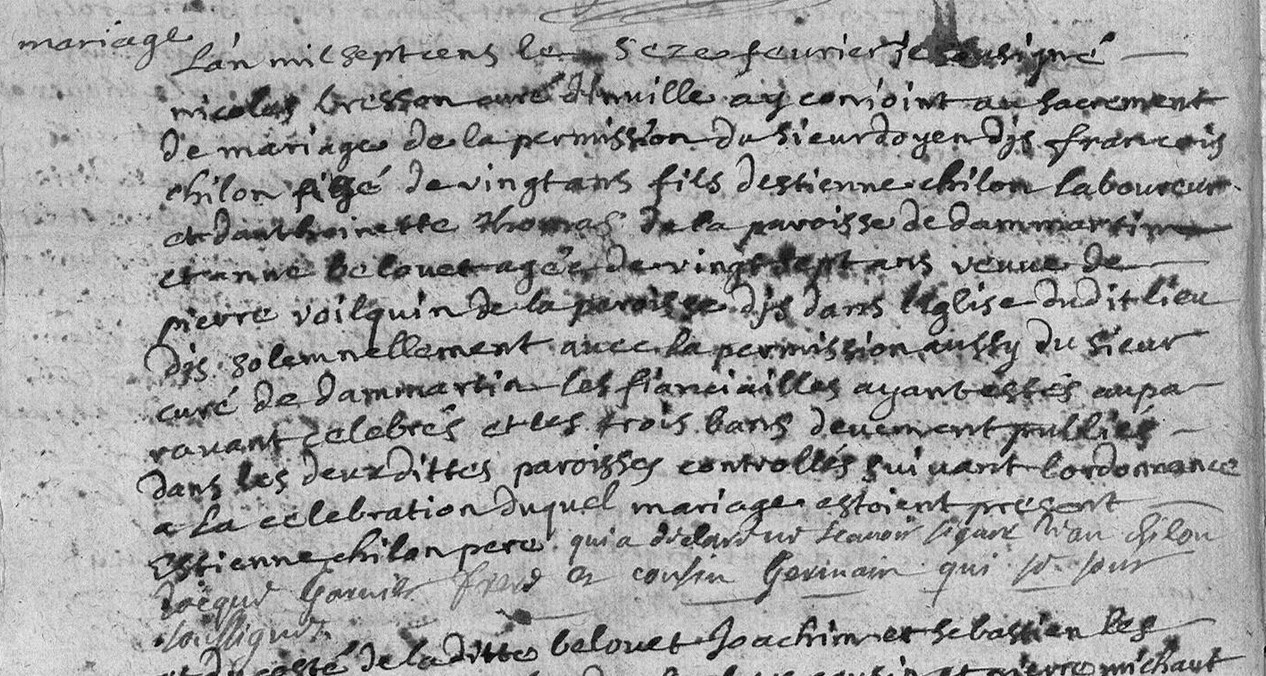 mariage
Lán mil septcens le seze feurier je sousigné
nicolas bresson curé dinuille ay conioint au sacrement
de mariage de la permission du sieur doyen djs francois
chilon agé de vingt ans fils destienne chilon laboureur
et danthoinette thomas de la paroisse de dammartin
et anne belouet ageé de vingt sept ans veuue de
pierre voilquin de la paroisse djs dans l'Eglise dudit lieu
djs solemnellement auec la permission aussy du sieur
curé de dammartin les fianciailles ayant estés aupa
rauant celebrés et les trois bans deuement publiés
dans les deux dittes paroisses controllés suiuant lordonnance
a la celebration duquel mariage estoient present
Estienne chilon pere qui a declaré ne scauoir signer chilon
Jacque Garnier frere et cousin Germain qui se sont
soussignez
et du costé de laditte belouet Joachim et sebastien les
cousin et pierre michaut